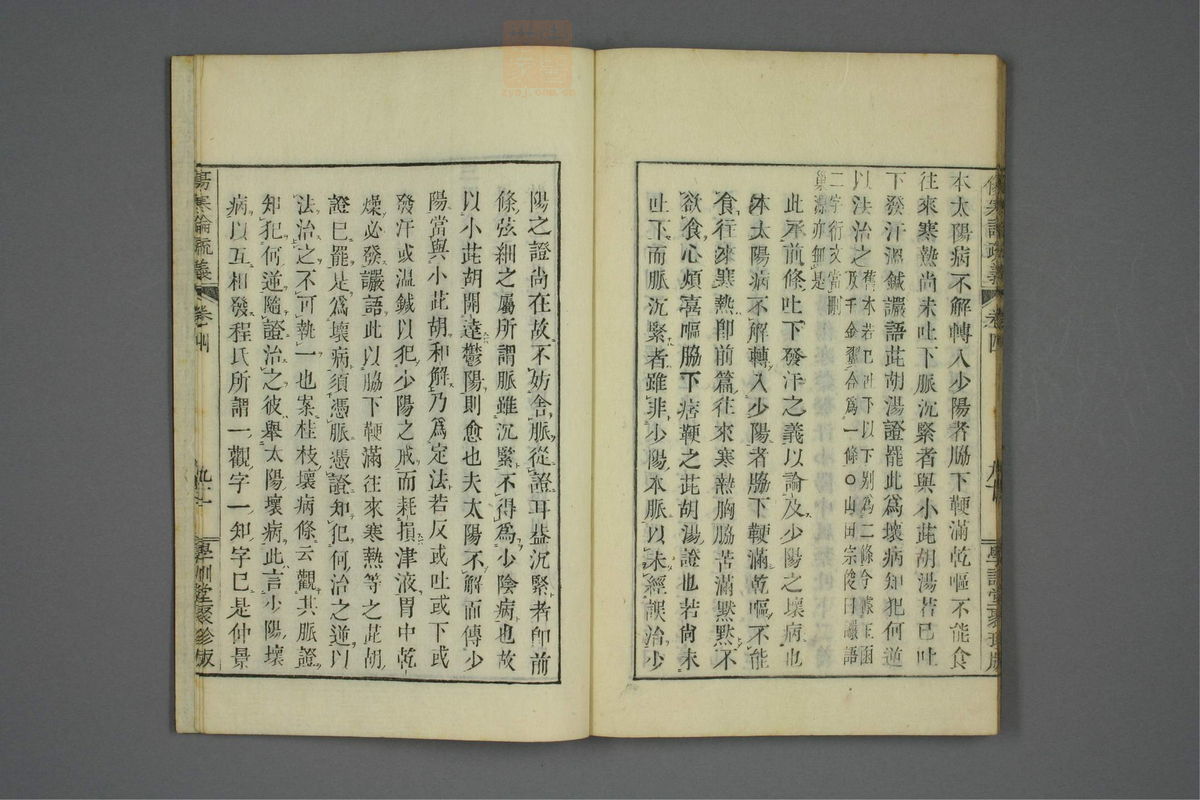 本太陽病不解轉入少陽者脇下鞕滿乾嘔不能食
往來寒熱尚未吐下脈沉緊者與小茈胡湯若已吐
下發汗溫鍼讝語茈胡湯證罷此爲壞病知犯何逆
以法治之舊本若已吐下以下別爲二條今據玉函
及千金翼合爲一條○山田宗俊曰讝語
二字衍文當刪
巢源亦無是
此承前條吐下發汗之義以論及少陽之壞病也
本太陽病不解轉入少陽者脇下鞕滿乾嘔不能
食往來寒熱卽前篇往來寒熱胸脇苦滿默默不
欲食心煩喜嘔脇下痞鞕之茈胡湯證也若尚未
吐下而脈沉緊者雖非少陽本脈以未經誤治少
傷寒論疏義
卷四
學訓堂聚珍版
陽之證尚在故不妨舍脈從證耳益沉緊者卽前
條弦細之屬所謂脈雖沉緊不得爲少陰病也故
以小茈胡開達鬱陽則愈也夫太陽不解而傳少
陽當與小茈胡和解乃爲定法若反或吐或下或
發汗或溫鍼以犯少陽之戒而耗損津液胃中乾
燥必發讝語此以脇下鞕滿往來寒熱等之茈胡
證已罷是爲壞病須憑脈憑證知犯何治之逆以
法治之不可執一也案桂枝壞病條云觀其脈證
知犯何逆隨證治之彼舉太陽壞病此言少陽壞
病以互相發程氏所謂一觀字一知字已是仲景
傷寒論疏義
卷四
學訓堂聚珍版